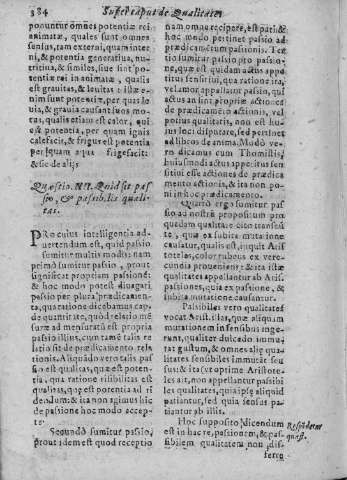 384 Super caput de Qualitate.
ponuntur omnes potentiæ rei
animatæ, quales sunt omnes
sensus, tam externi, quàm inter
ni, & potentia generatiua, nu-
tritiua, & similes, siue sint po-
tentiæ rei in animatæ, qualis
est grauitas, & leuitas: illæ e-
nim sunt potentiæ, per quas le-
uia, & grauia causant suos mo-
tus, qualis etiam est calor, qui
est potentia, per quam ignis
calefacit, & frigus est potentia
per quam aqua frigefacit:
& sic de alijs.
Quæstio. VI. Quid sit pas
sio, & passibilis quali
tas.
PRo cuius intelligentia ad-
uertendum est, quòd passio
sumitur multis modis: nam
primò sumitur passio, prout
significat propriam passionē:
& hoc modo potest diuagari
passio per plura prædicamen-
ta, quæ dicitur in tantùm de qua-
cum quantitate, quòd relatio mē
suræ ad mensurata est propria
passio illius, cum tamē talis re
latio sit de prædicamento rela-
tionis. Aliquãdo verò talis pas
sio est qualitas, quæ est poten-
tia, qua ratione risibilitas est
qualitas, quę est potentia ad ri
dendum: & ita non agimus hic
de passione hoc modo accep-
te
Secundò sumitur passio,
prout idem est quod receptio
nam omne recipere, est pati: &
hoc modo pertinet passio ad
prædicamētum passionis. Ter
tiò sumitur pro passione,
quæ est quidam actus appeti
tus sensitiui, qua ratione ira,
vel amor appellatur passio, qui
actus an sint propriæ actiones
de prædicamēto actionis, vel
potius qualitatis, non est hu-
ius loci disputare, sed pertinet ad
libros de anima. Modò ve-
rò dicimus cum Thomistis,
huiusmodi actus appetitus sen
sitiui esse actiones de prædica
mento actionis, & ita non po-
ni in hoc prædicamento.
Quartò ergo sumitur pas
sio ad nostrũ propositum pro
qualitate quæ citò transit
te, qua ex subita mutatione
causatur, qualis est, inquit Aris
toteles, color rubeus ex vere-
cundia proueniens: & ista ista
qualitates appellantur ab Aris.
passiones, quia ex passione, &
subita mutatione causantur.
Passibiles vero qualitates
vocat Arist. illas, quæ aliquam
immutationem in sensibus inge-
nerant, qualiter dulcedo immu-
tat gustum, & omnes aliæ qua
litates sensibiles immutāt se-
sus: & ita (vt optime Aristote-
les ait, non appellantur passibi
les qualitates, quia ipsæ aliquid
patiantur, sed quia sensus pa-
tiantur ab illis.
Hoc supposito, dicendum
est in hac re, passionem, & pas-
sibilem qualitatem non dif-
ferre
Respōdetur
quæst.